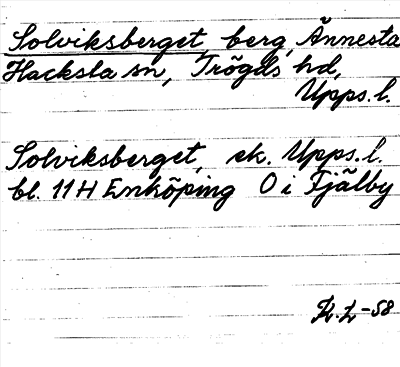 Solviksberget, berg, Ännesta
Hacksta sn, Trögds hd,
Upps. l.
Solviksberget, ek. Upps. l.
bl. 11H Enköping O i Fjälby
K. L -58